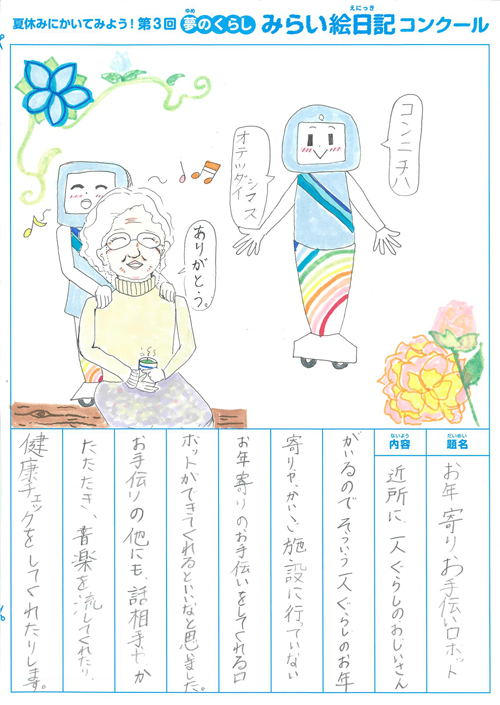 夏休みにかいてみよう！第3回 夢のくらし みらい絵日記コンクール
ゆめ
えにっき
コンニチハ
オテツダイ
シマス
ありがとう。
だいめい
題名
お年寄りお手伝いロボット
ないよう
内容
近所に、一人ぐらしのおじいさん
がいるので そういう一人ぐらしのお年
寄りや、かいご施設に行っていない
お年寄りのお手伝いをしてくれるロ
ボットができてくれるといいなと思いました。
お手伝いの他にも、話相手やか
たたたき、音楽を流してくれたり、
健康チェックをしてくれたりします。